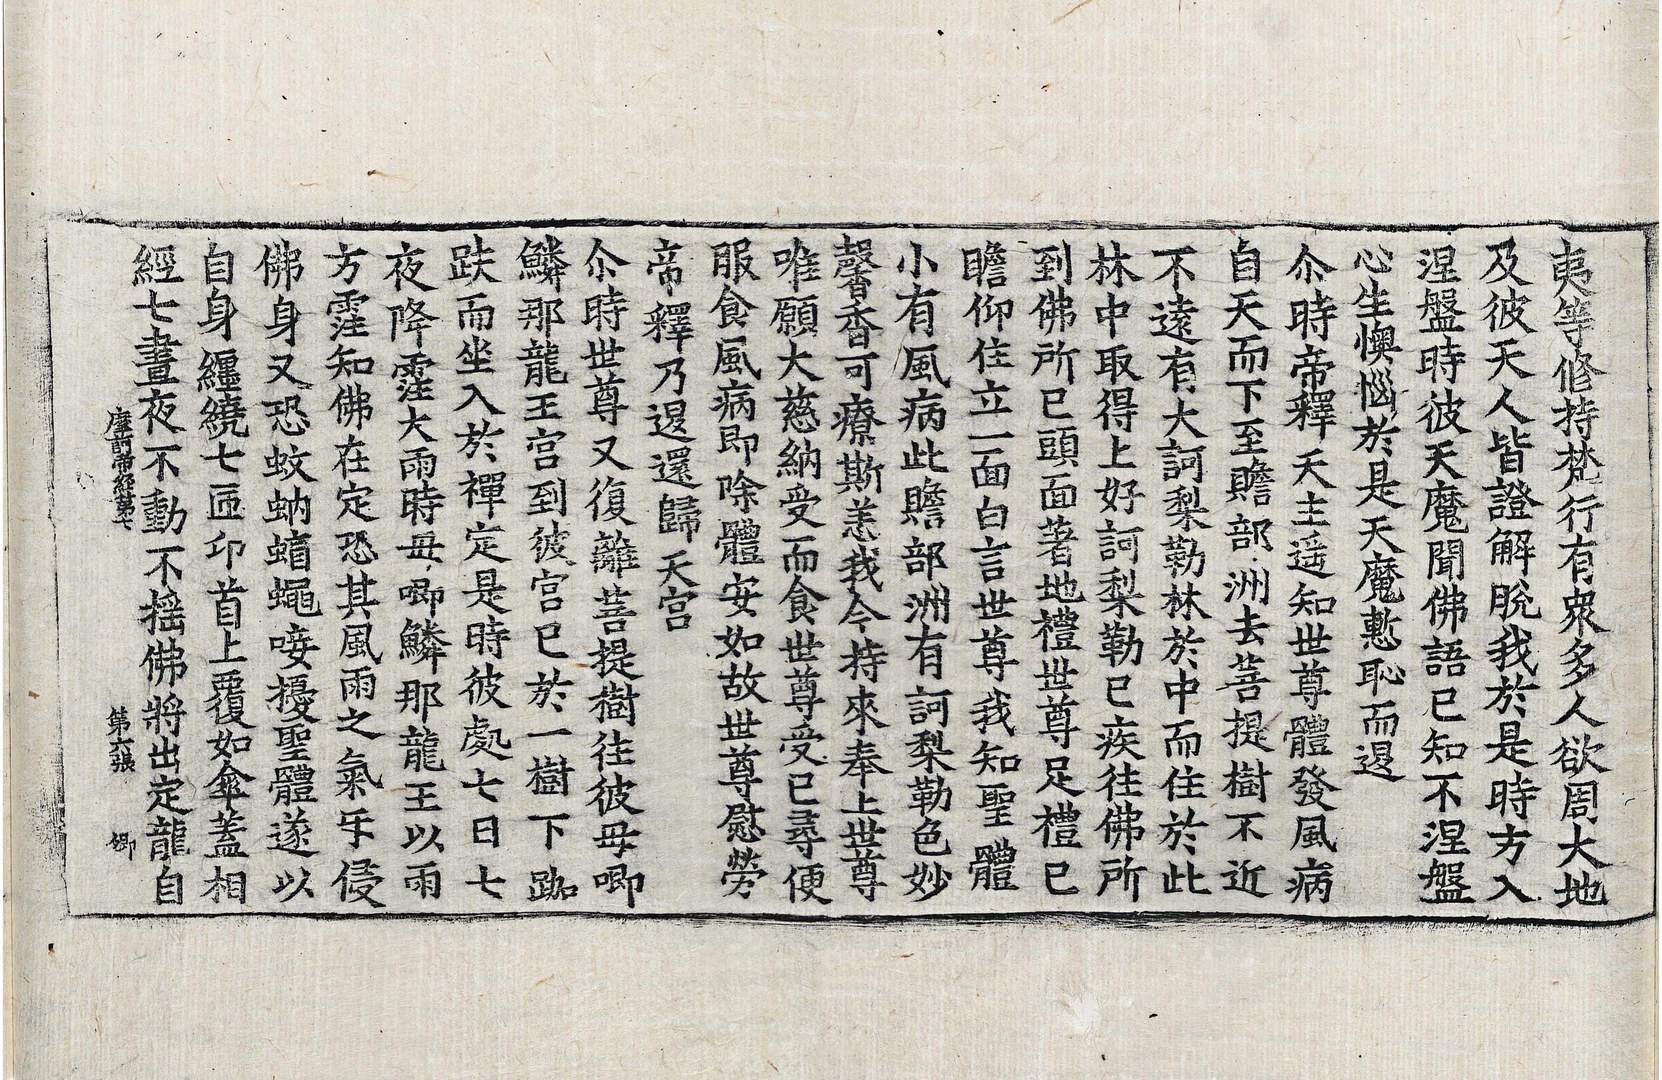 夷等修持梵行有衆多人欲周大地
及彼天人皆證解脫我於是時方入
涅盤時彼天魔聞佛語已知不涅盤
心生懊惱於是天魔慙恥而退
尒時帝釋天主遥知世尊體發風病
自天而下至贍部洲去菩提樹不近
不遠有大訶梨勒林於中而住於此
林中取得上好訶梨勒已疾往佛所
到佛所已頭面著地禮世尊足禮已
瞻仰住立一面白言世尊我知聖體
小有風病此贍部洲有訶梨勒色妙
馨香可療斯恙我今持來奉上世尊
唯願大慈納受而食世尊受已尋便
服食風病即除體安如故世尊慰勞
帝釋乃退還歸天宫
尒時世尊又復離菩提樹往彼毋唧
鱗那龍王宫到彼宫已於一樹下跏
趺而坐入於禪定是時彼處七日七
夜降霔大雨時毋唧鱗那龍王以雨
方霔知佛在定恐其風雨之氣乐侵
佛身又恐蚊蚋蝱蠅唼擾聖體遂以
自身纏繞七匝卬首上覆如傘蓋相
經七晝夜不動不摇佛將出定龍自
帝經第七 第六張 卿